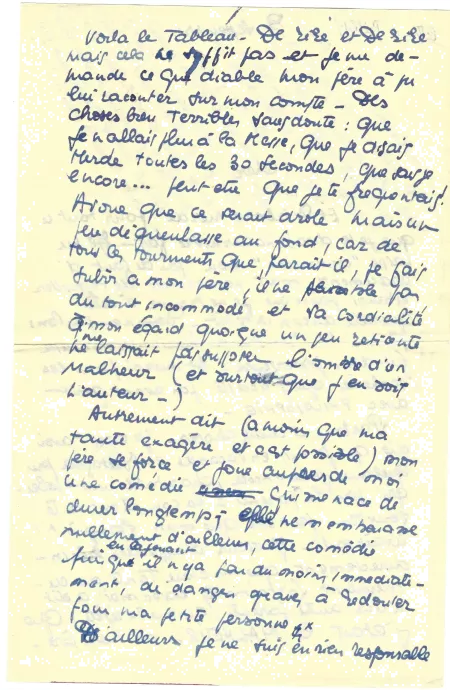 Voila le Tableau - De rire et De rire
mais cela ne suffit pas et je me de-
mande ce que diable mon père à pu
lui raconter sur mon compte - Des
choses bien Terribles sans doute : que
je n'allais plus à la Messe, que je disais
Merde toutes les 30 secondes, que sais je
encore... peut etre que je te frequentais!
Avoue que ce serait drole mais un
peu dégueulasse au fond, car de
tous les tourments que, parait il, je fais
subir a mon père, il ne semble pas
du tout incommodé et sa cordialité
à mon égard quoique un peu reticente
ne me laissait pas supposer l'ombre d'un
Malheur (et surtout que j'en sois
L'auteur -)
Autrement dit (a moins que ma
tante exagère et c'est possible) mon
père se force et joue auprès de moi
une comédie qui menace de
durer longtemps; elle ne m'embarrasse
nullement d'ailleurs, cette comédie
puisque il n'y a pas du moins, immédiate-
ment, de danger grave, à redouter
pour ma petite personne
D'ailleurs je ne suis en rien responsable